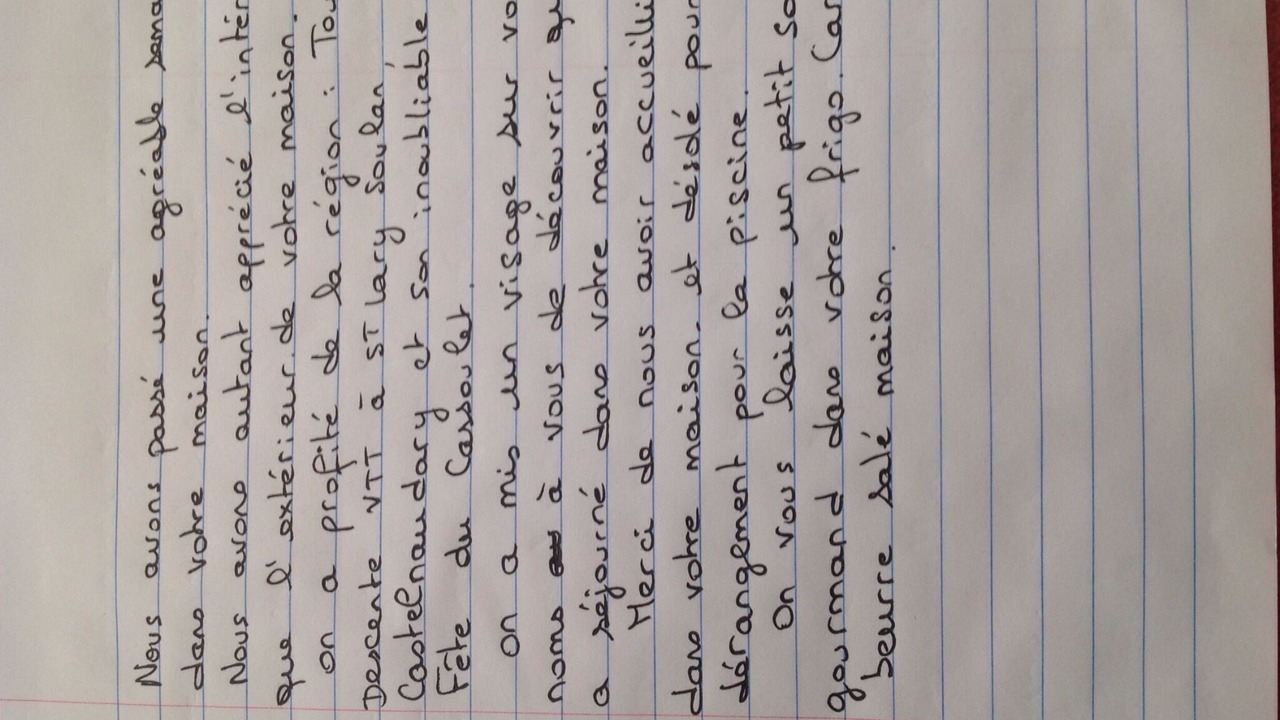 Nous avons passé une agréable sema
dans votre maison.
Nous avons autant apprécié l'intér
que l'extérieur de votre maison.
on a profité de la région : Tou
Descente VTT à ST Lary Soulan,
Castelnaudary et son inoubliable
Fête du Cassoulet.
on a mis un visage sur vo
noms à vous de découvrir qu
a séjourné dans votre maison.
Merci de nous avoir accueilli
dans votre maison. et désolé pour
dérangement pour la piscine.
On vous laisse un petit so
gourmand dans votre frigo. Car
beurre salé maison.